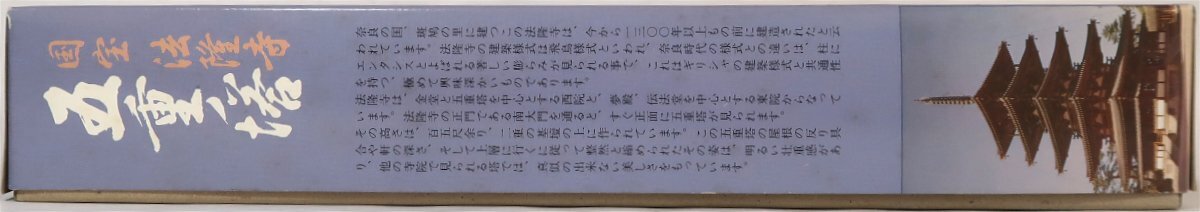 国宝 法隆寺
五重塔
奈良の国、斑鳩の里に建つこの法隆寺は、今から一三〇〇年以上もの前に建造されたと云
われています。法隆寺の建築様式は飛鳥様式といわれ、奈良時代の様式との違いは、柱に
エンタシスとよばれる著しい膨らみが見られる事で、これはギリシヤの建築様式と共通性
を持つ、極めて興味深かいものであります。
法隆寺は、金堂と五重塔を中心とする西院と、夢殿、伝法堂を中心とする東院からなって
います。法隆寺の正門である南大門を通ると、すぐ正面に五重塔が見られます。
その高さは、百五尺余り、二重の基壇の上に作られています。この五重塔の屋根の反り具
合や軒の深さ、そして上層に行くに従って整然と縮められたその姿は、明るい壮重感があ
り、他の寺院で見られる塔では、真似の出来ない美しさをもっています。